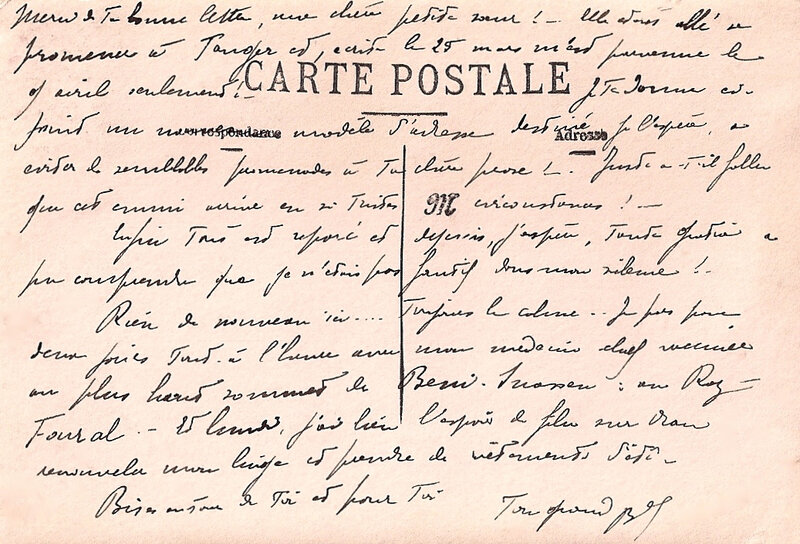 Merci de Ta bonne lettre, ma chère petite sœur ! – Elle a été se
promener à Tanger et, écrite le 25 mars m'est parvenue le
9 avril seulement ! –
CARTE POSTALE
Je Te donne ci-
joint un nouveau modèle d'adresse destiné, je l'espère, à
Correspondance
Adresse
éviter de semblables promenades à Ta chère prose ! – Juste a-t-il fallu
que cet ennui arrive en si tristes circonstances ! –
M
Enfin Tout est réparé et depuis, j'espère, Tante Gratia a
pu comprendre que je n'étais pas fautif dans mon silence ! –
Rien de nouveau ici.... Toujours le calme.. Je pars pour
deux jours Tout à l'heure avec mon médecin chef vacciner
au plus haut sommet des Beni-Snassen : au Ras
Foural. – Et lundi, j'ai bien l'espoir de filer sur Oran
renouveler mon linge et prendre des vêtements d'été. –
Bises autour de Toi et pour Toi
Ton grand